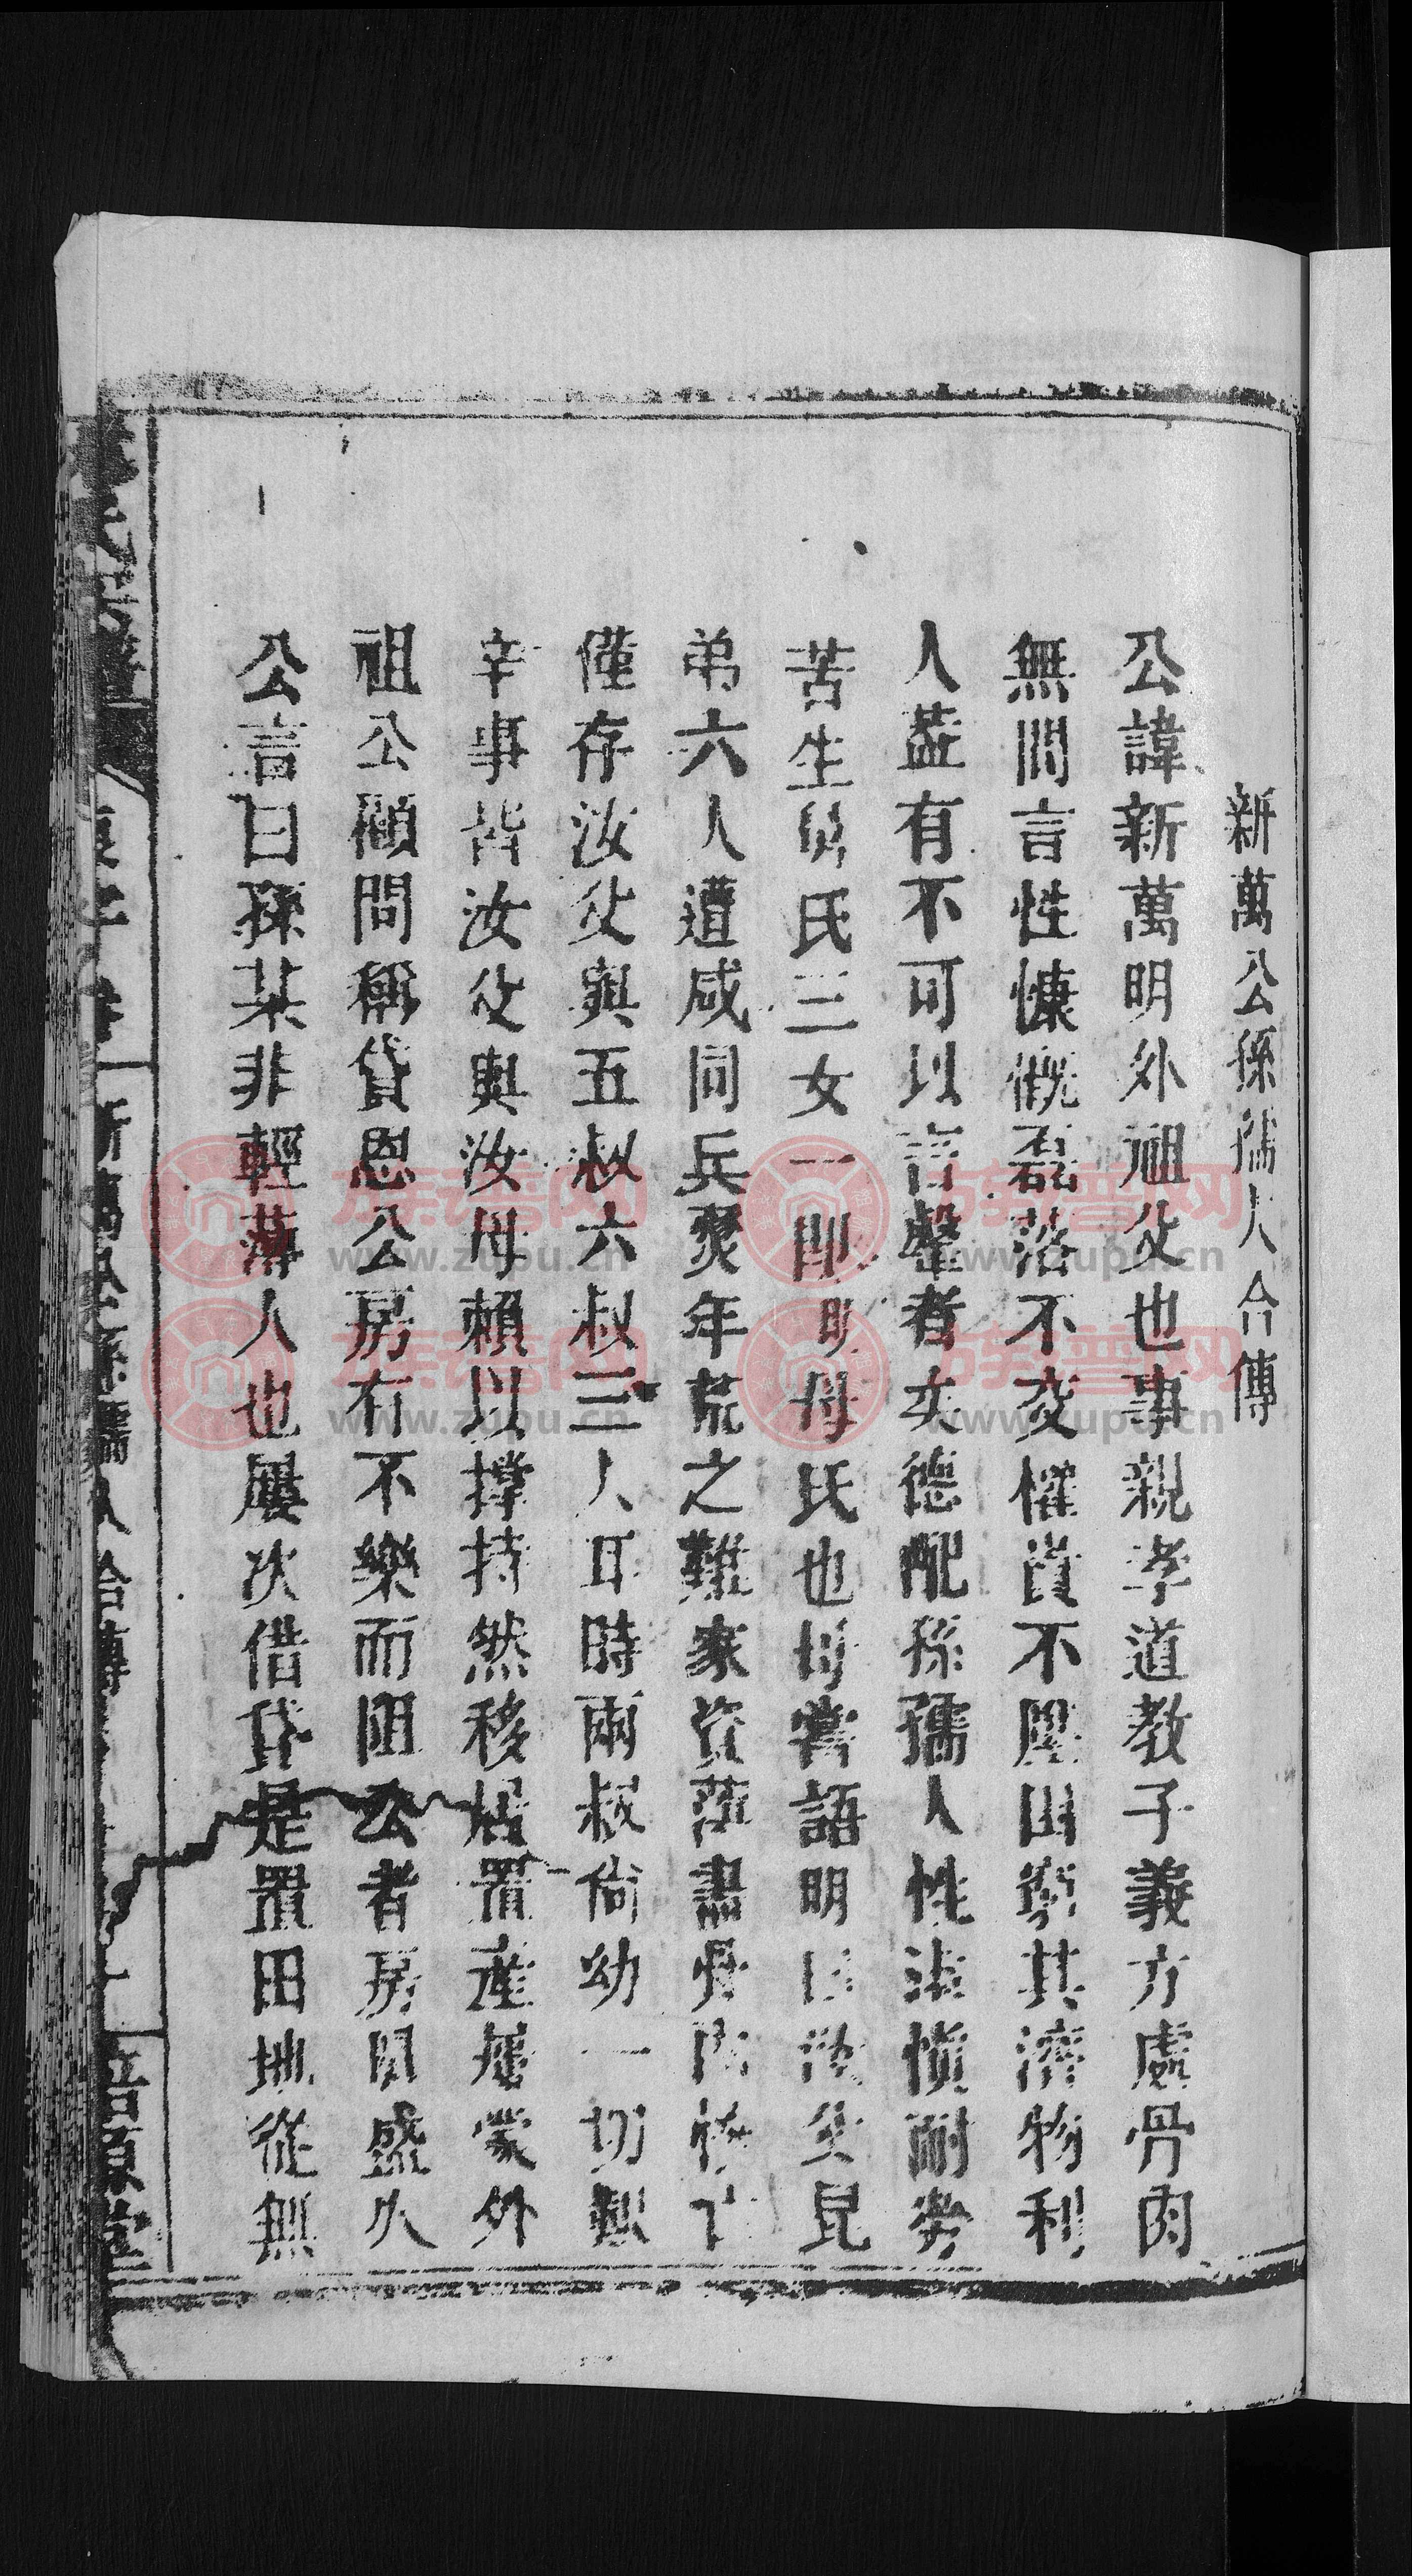 新萬公孫孺人合傳
公諱新萬明外祖父也事親孝道教子義方處骨肉
無間言性慷慨磊落不交權貴不壓困窮其濟物利
人蓋有不可以言罄者女德配孫孺人性淡慎耐勞
苦生舅氏三女一即明母氏也母嘗語明曰汝父昆
弟六人遭咸同兵燹年荒之難家資蕩盡骨肉
僅存汝父與五叔六叔三人耳時兩叔尚幼一切艱
辛事皆汝父與汝母賴以撐持然移居置產荷蒙外
祖公顧問稱貸恩公房有不樂而阻公者房問盛久
公言曰孫某非輕薄人也屢次借貸是置田地從無
新萬公孫孺人合傳
族谱网
www.zupu.cn
族谱网
www.zupu.cn
族谱网
www.zupu.cn
族谱网
www.zupu.cn